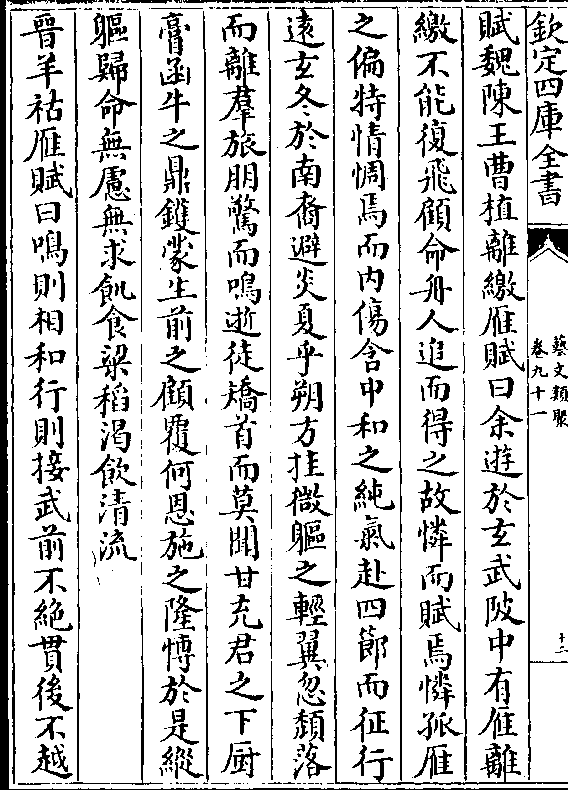 欽定四庫全書
藝文類聚
卷九十一
十二
賦魏陳王曹植離繳雁賦曰余遊於玄武陂中有雁離
繳不能復飛顧命舟人追而得之故憐而賦焉憐孤雁
之偏特情惆焉而内傷含中和之純氣赴四節而征行
逺玄冬於南裔避炎夏乎朔方挂微軀之輕翼忽頽落
而離羣旅朋驚而鳴逝徒矯首而莫聞甘充君之下厨
膏函牛之鼎鑊蒙生前之顧覆何恩施之隆愽於是縱
軀歸命無慮無求飢食粱稻渴飲清流
晉羊祜雁賦曰鳴則相和行則接武前不絶貫後不越